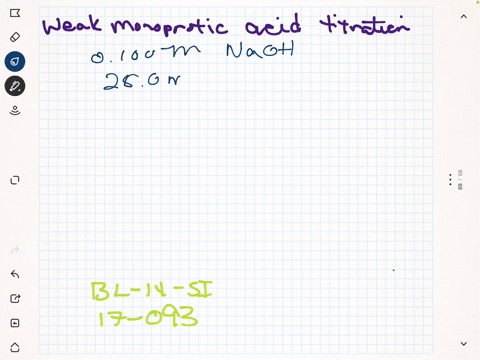 Weak monoprotic acid titration
0.100 M NaOH
25.0 m
BL-14-SI
17-093